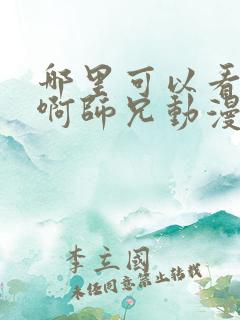 哪里可以看
啊師兄動漫
李立國
未经同意禁止转载